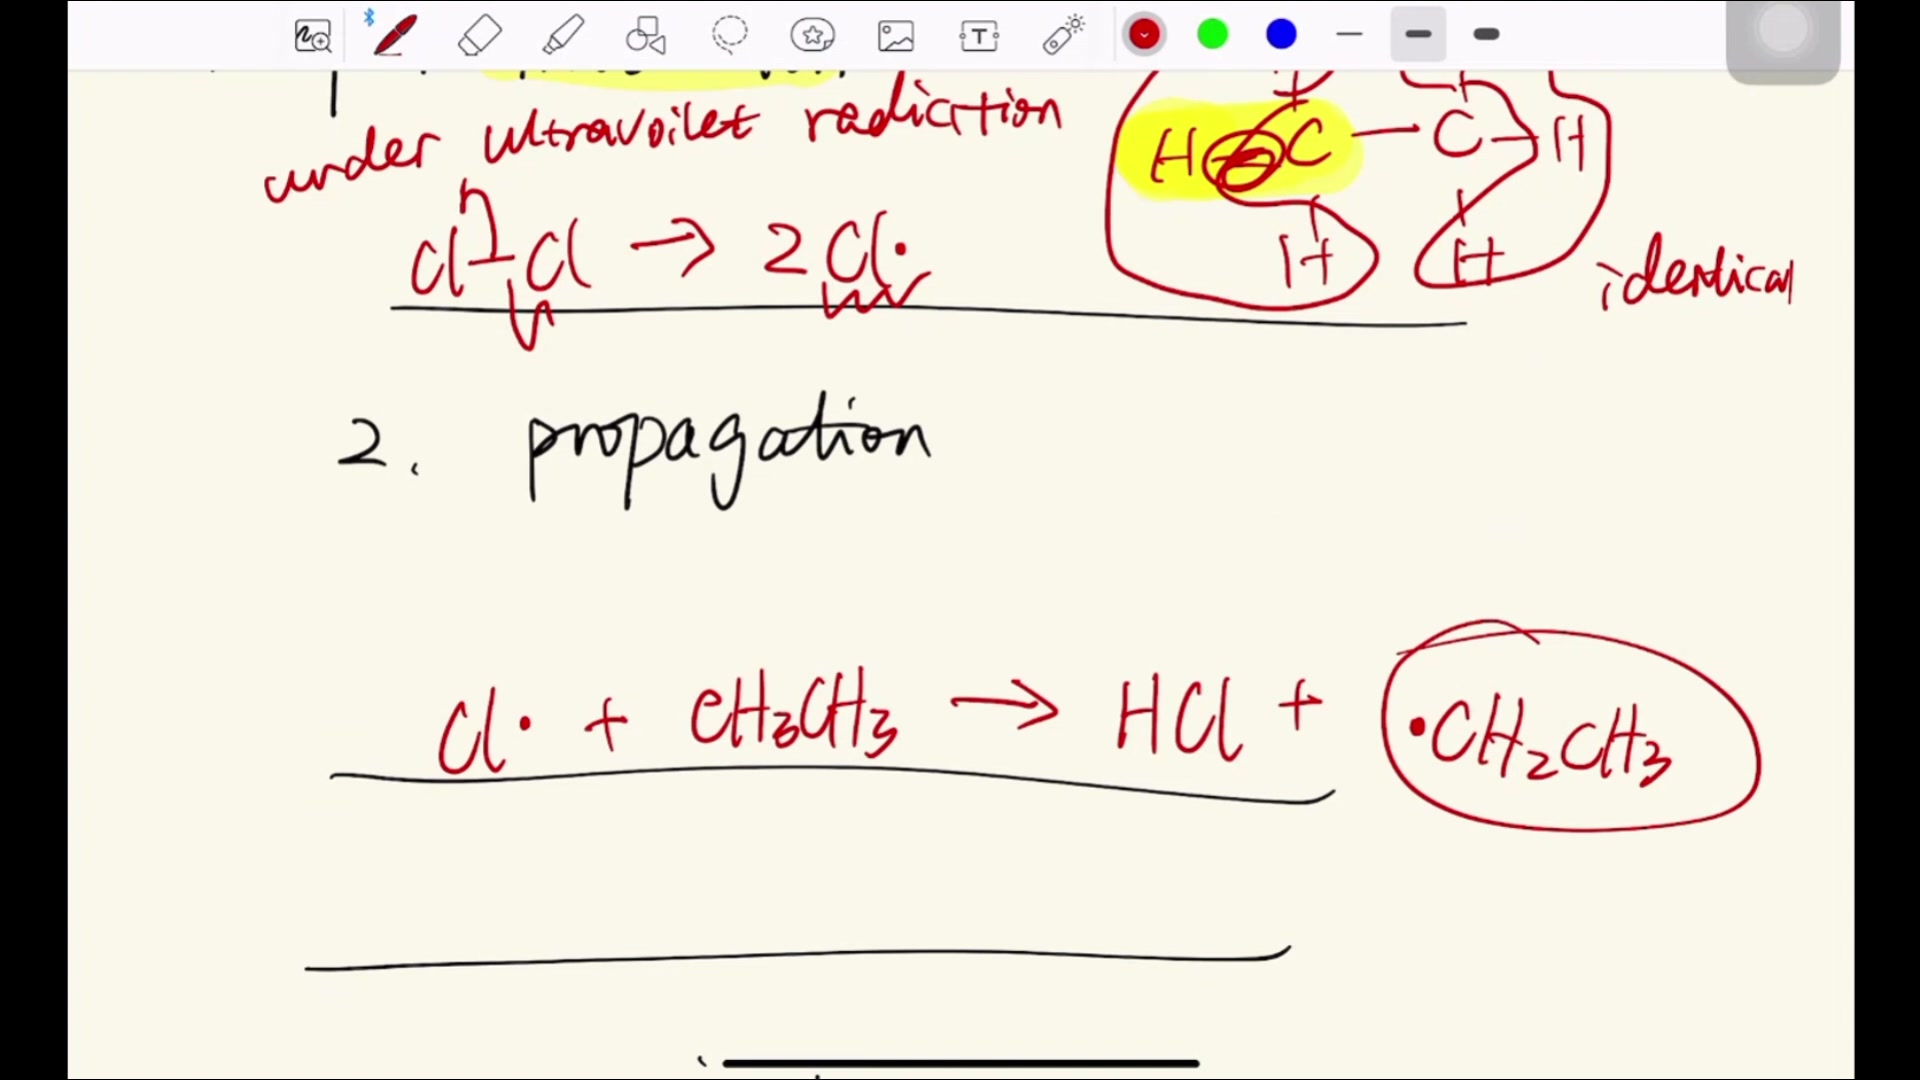 under ultravoilet radiction
Cl-Cl → 2Cl·
H C — C - H
H H
identical
2. propagation
Cl· + CH₃CH₃ → HCl + ·CH₂CH₃